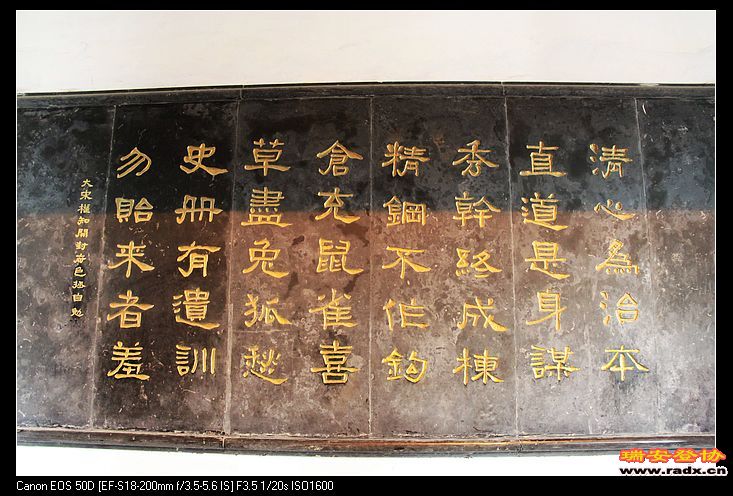 清心為治本
直道是身謀
秀幹終成棟
精鋼不作鈎
倉充鼠雀喜
草盡兔狐愁
史冊有遺訓
勿貽来者羞
大宋權知開封府包拯自勉
瑞安登协
www.radx.cn
Canon EOS 50D [EF-S18-200mm f/3.5-5.6 IS] F3.5 1/20s ISO1600